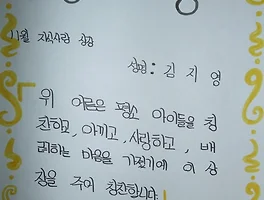 11월 자식사랑 상장
성명 : 김지영
위 어른은 평소 아이들을 칭
찬하고, 아끼고, 사랑하고, 배
려하는 마음을 가졌기에 이 상
장을 주어 칭찬합니다!